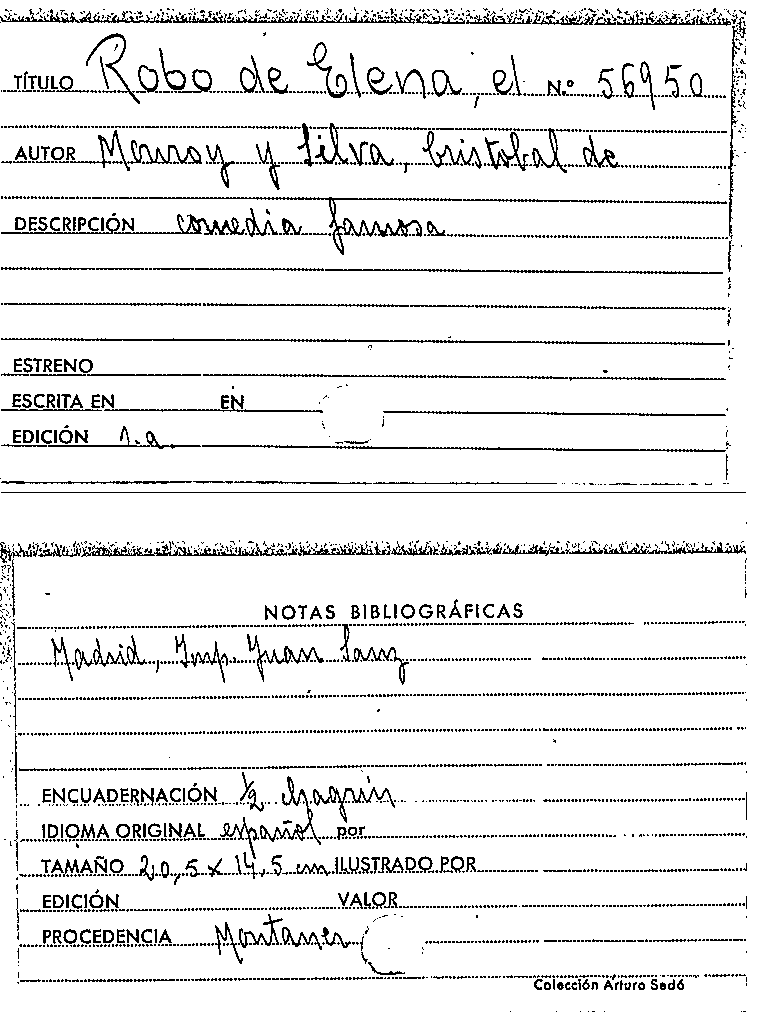 TÍTULO Robo de Elena, el N.º 56950
AUTOR Monroy y Silva, Cristobal de
DESCRIPCIÓN comedia famosa
ESTRENO
ESCRITA EN EN
EDICIÓN 1.a
NOTAS BIBLIOGRÁFICAS
Madrid, Imp. Juan Sanz
ENCUADERNACIÓN ½ chagrín
IDIOMA ORIGINAL español por
TAMAÑO 20,5 x 14,5 cm ILUSTRADO POR
EDICIÓN VALOR
PROCEDENCIA Montaner
Colección Arturo Sedó